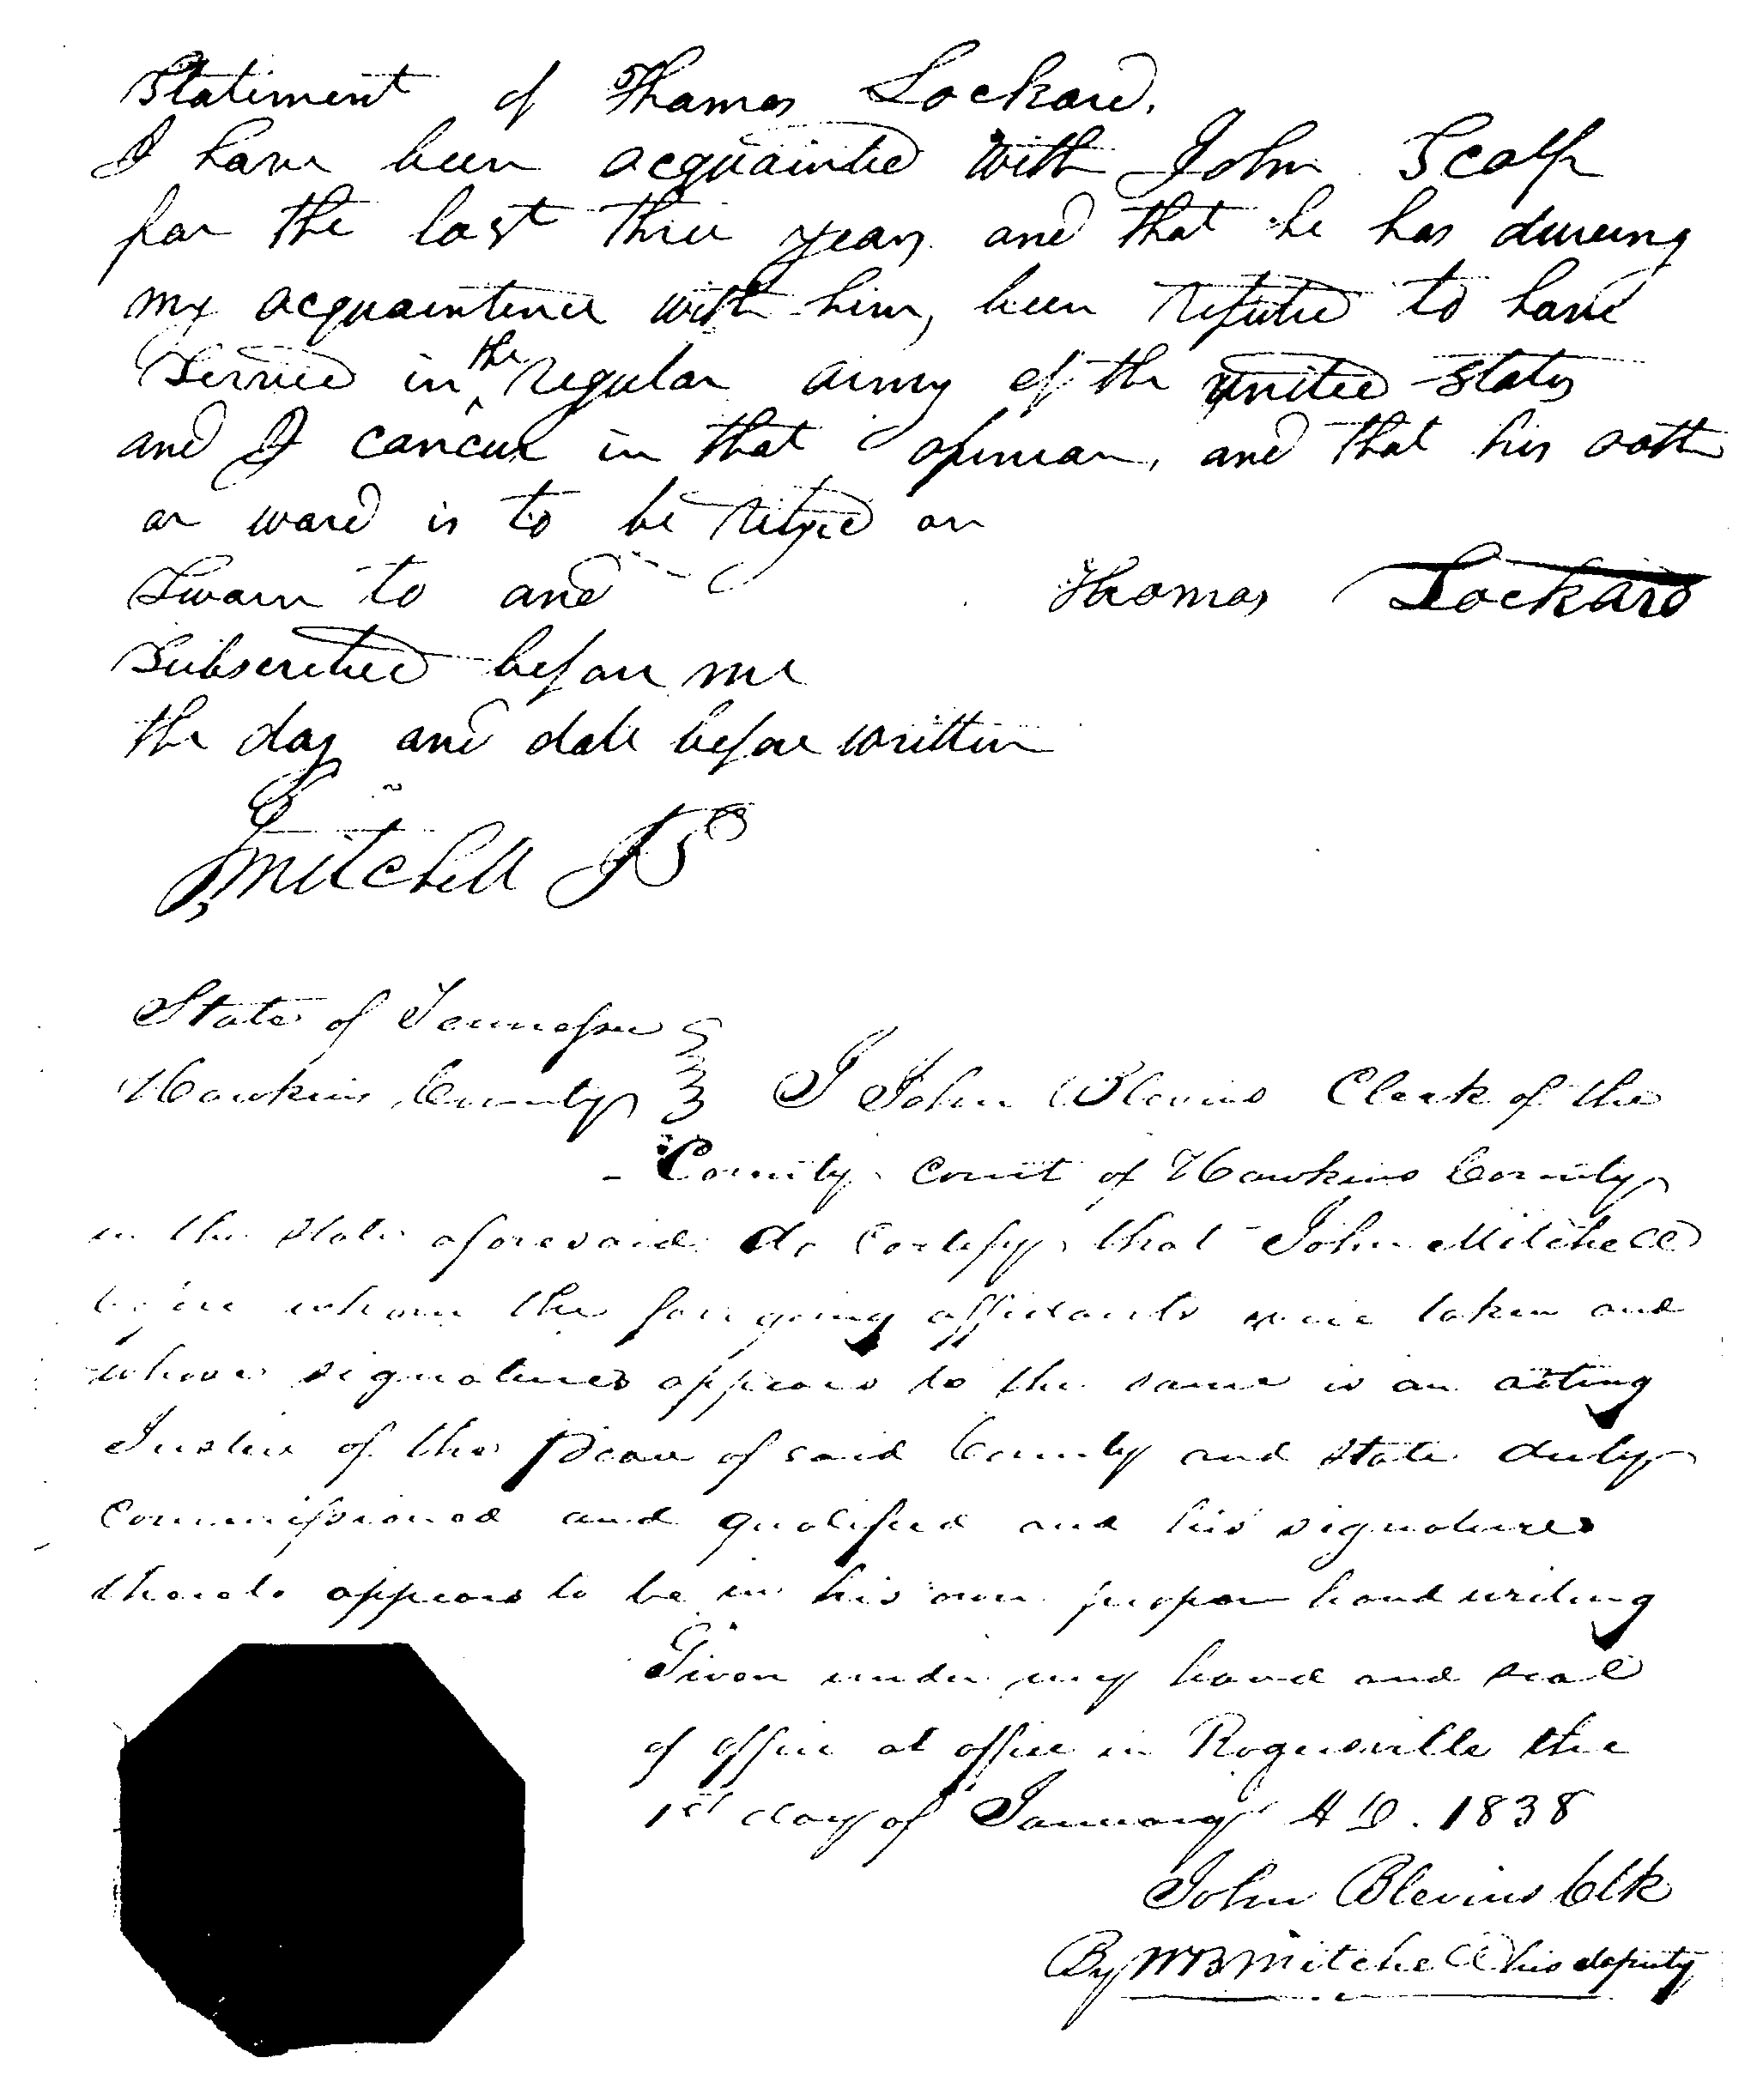 Statement of Thomas Lockard.
I have been acquainted with John Scalf
for the last three years and that he has dureing
my acquaintence with him, been reputed to have
Served in the regular army of the united states
and I concur in that opinion, and that his oath
or word is to be relyed on
Sworn to and Thomas Lockard
Subscribed before me
the day and date before written
J Mitchell JP
State of Tennessee
Hawkins County I John Blevins Clerk of the
County court of Hawkins County
in the state aforesaid do certify that John Mitchell
before whom the foregoing affidavits were taken and
whose signatures appears to the same is an acting
Justice of the peace of said County and state duly
Commissioned and qualified and his signatures
thereto appears to be in his own proper hand writing
Given under my hand and seal
of office at office in Rogersville the
1st day of January A D. 1838
John Blevins Clk
By WB Mitchell his deputy